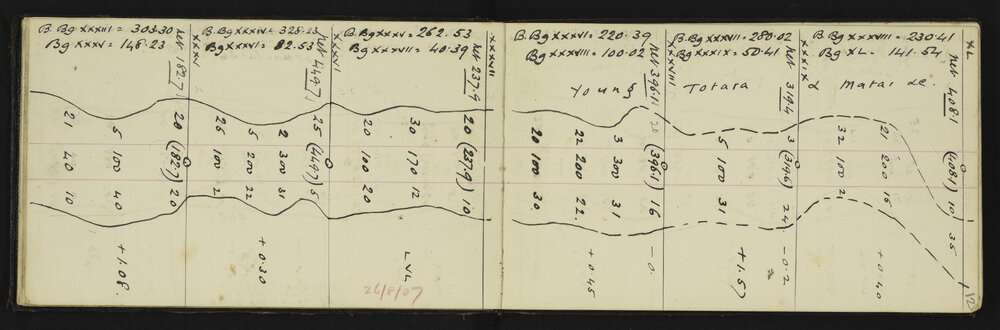 B.Bg XXXIII = 303.30
Bg XXXV = 148.23
XXXV
Net 182.7
20 (182.7) 20
5 100 40
21 40 10
+1.08.
B.Bg XXXIV = 328.23
Bg XXXVI = 82.53
XXXVI
Net 449.7
25 (449.7) 5
2 300 31
5 200 22
25 100 2
+0.30
B.Bg XXXV = 262.53
Bg XXXVII = 40.39
XXXVII
Net 237.9
20 (237.9) 10
30 170 12
20 100 20
LVL
26/8/07
B.Bg XXXVI = 220.39
Bg XXXVIII = 100.02
XXXVIII
Net 396.1
20 (396.1) 16
3 300 31
22 200 22.
20 100 30
-0.
+0.45
B.Bg XXXVII = 280.02
Bg XXXIX = 50.41
XXXIX
Net 319.4
3 (319.6) 24
5 100 31
-0.2
+1.57
B.Bg XXXVIII = 230.41
Bg XL = 141.54
XL
Net 408.1
(408.1) 10 35
21 200 15
32 100 2
+0.40
Young Totara & Matai &c.
12